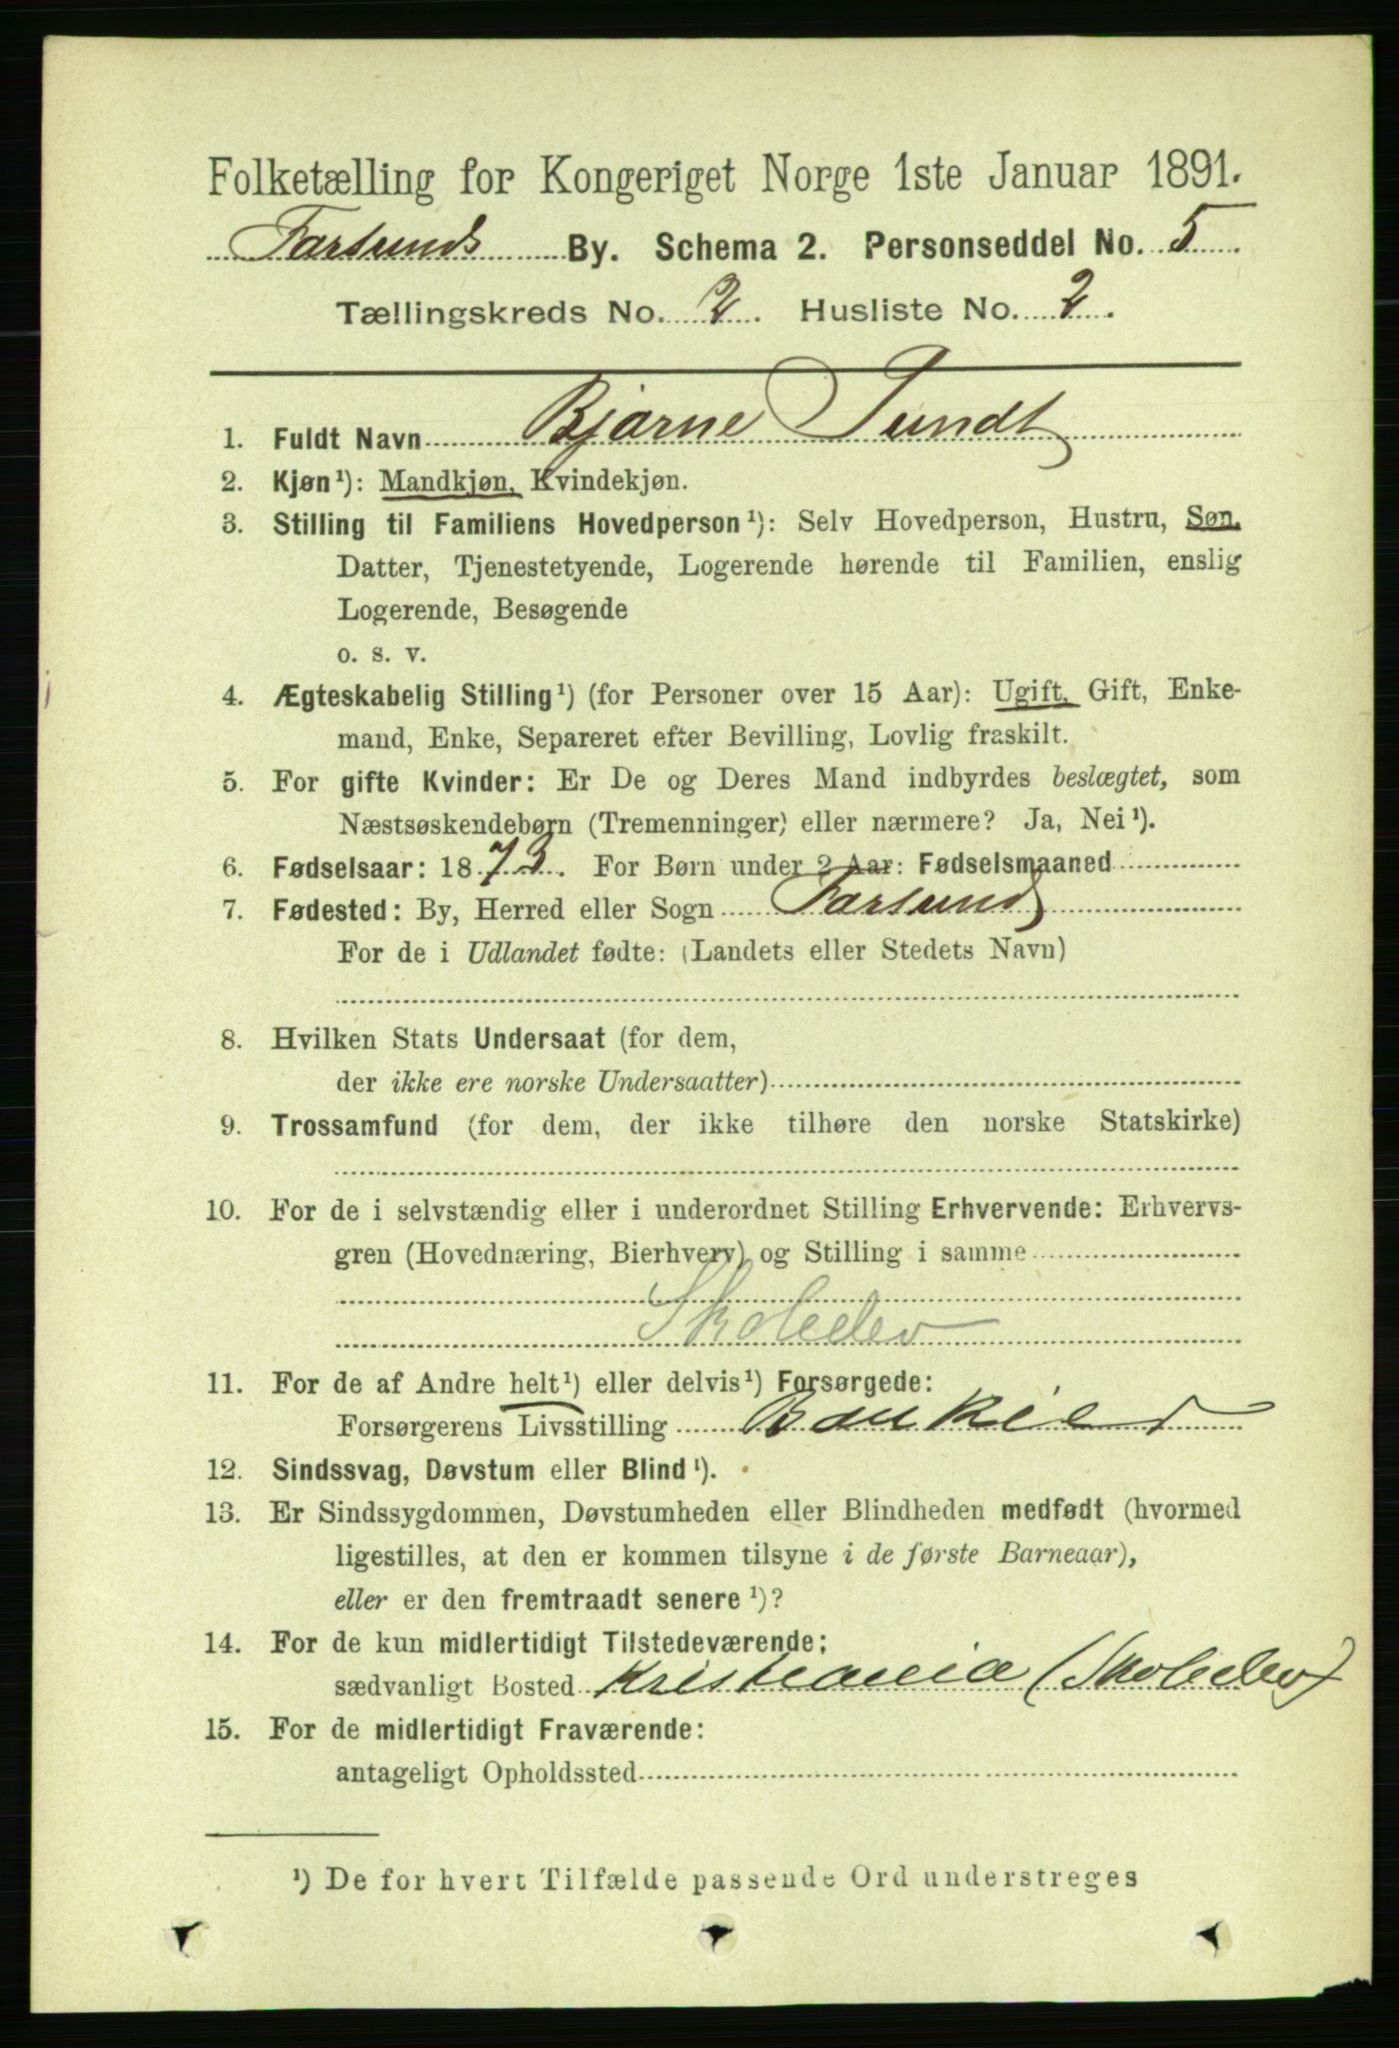 Folketælling for Kongeriget Norge 1ste Januar 1891.
Farsunds By. Schema 2. Personseddel No. 5
Tællingskreds No. 2. Husliste No. 2.
1. Fuldt Navn Bjarne Sundt
2. Kjøn¹): Mandkjøn, Kvindekjøn.
3. Stilling til Familiens Hovedperson¹): Selv Hovedperson, Hustru, Søn,
Datter, Tjenestetyende, Logerende hørende til Familien, enslig
Logerende, Besøgende
o. s. v.
4. Ægteskabelig Stilling¹) (for Personer over 15 Aar): Ugift, Gift, Enke-
mand, Enke, Separeret efter Bevilling, Lovlig fraskilt.
5. For gifte Kvinder: Er De og Deres Mand indbyrdes beslægtet, som
Næstsøskendebørn (Tremenninger) eller nærmere? Ja, Nei¹).
6. Fødselsaar: 1873. For Børn under 2 Aar: Fødselsmaaned
7. Fødested: By, Herred eller Sogn Farsund
For de i Udlandet fødte: (Landets eller Stedets Navn)
8. Hvilken Stats Undersaat (for dem,
der ikke ere norske Undersaatter)
9. Trossamfund (for dem, der ikke tilhøre den norske Statskirke)
10. For de i selvstændig eller i underordnet Stilling Erhvervende: Erhvervs-
gren (Hovednæring, Bierhverv) og Stilling i samme
Skoleelev
11. For de af Andre helt¹) eller delvis¹) Forsørgede:
Forsørgerens Livsstilling Bankier
12. Sindssvag, Døvstum eller Blind¹).
13. Er Sindssygdommen, Døvstumheden eller Blindheden medfødt (hvormed
ligestilles, at den er kommen tilsyne i de første Barneaar),
eller er den fremtraadt senere¹)?
14. For de kun midlertidigt Tilstedeværende:
sædvanligt Bosted Kristiania (Skoleelev)
15. For de midlertidigt Fraværende:
antageligt Opholdssted
¹) De for hvert Tilfælde passende Ord understreges